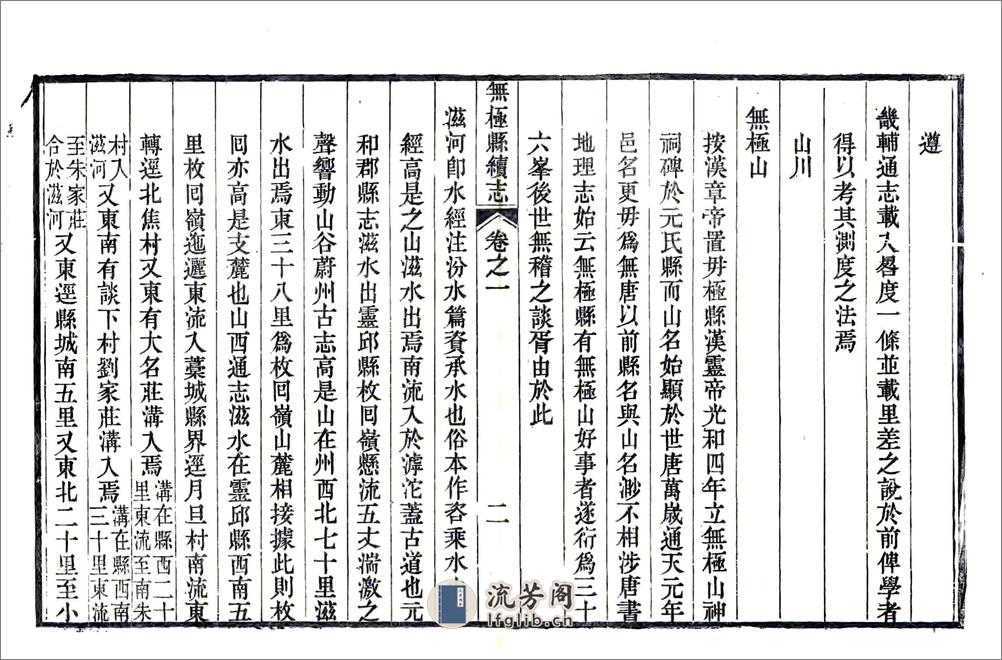 遵
畿輔通志載入晷度一條並載里差之說於前俾學者
得以考其測度之法焉
山川
無極山
按漢章帝置毋極縣漢靈帝光和四年立無極山神
祠碑於元氏縣而山名始顯於世唐萬歲通天元年
邑名更毋爲無唐以前縣名與山名渺不相涉唐書
地理志始云無極縣有無極山好事者遂衍爲三十
六峯後世無稽之談胥由於此
無極縣續志 卷之一 二
滋河卽水經注汾水篇資承水也俗本作咨乘水
經高是之山滋水出焉南流入於滹沱蓋古道也元
和郡縣志滋水出靈邱縣枚囘嶺懸流五丈湍激之
聲響動山谷蔚州古志高是山在州西北七十里滋
水出焉東三十八里爲枚囘嶺山麓相接據此則枚
囘亦高是支麓也山西通志滋水在靈邱縣西南五
里枚囘嶺迤邐東流入藁城縣界逕月旦村南流東
轉逕北焦村又東有大名莊溝入焉溝在縣西二十里東流至南朱
村入滋河又東南有談下村劉家莊溝入焉溝在縣西南三十里東流
至朱家莊合於滋河又東逕縣城南五里又東北二十里至小
流芳阁
lfglib.cn